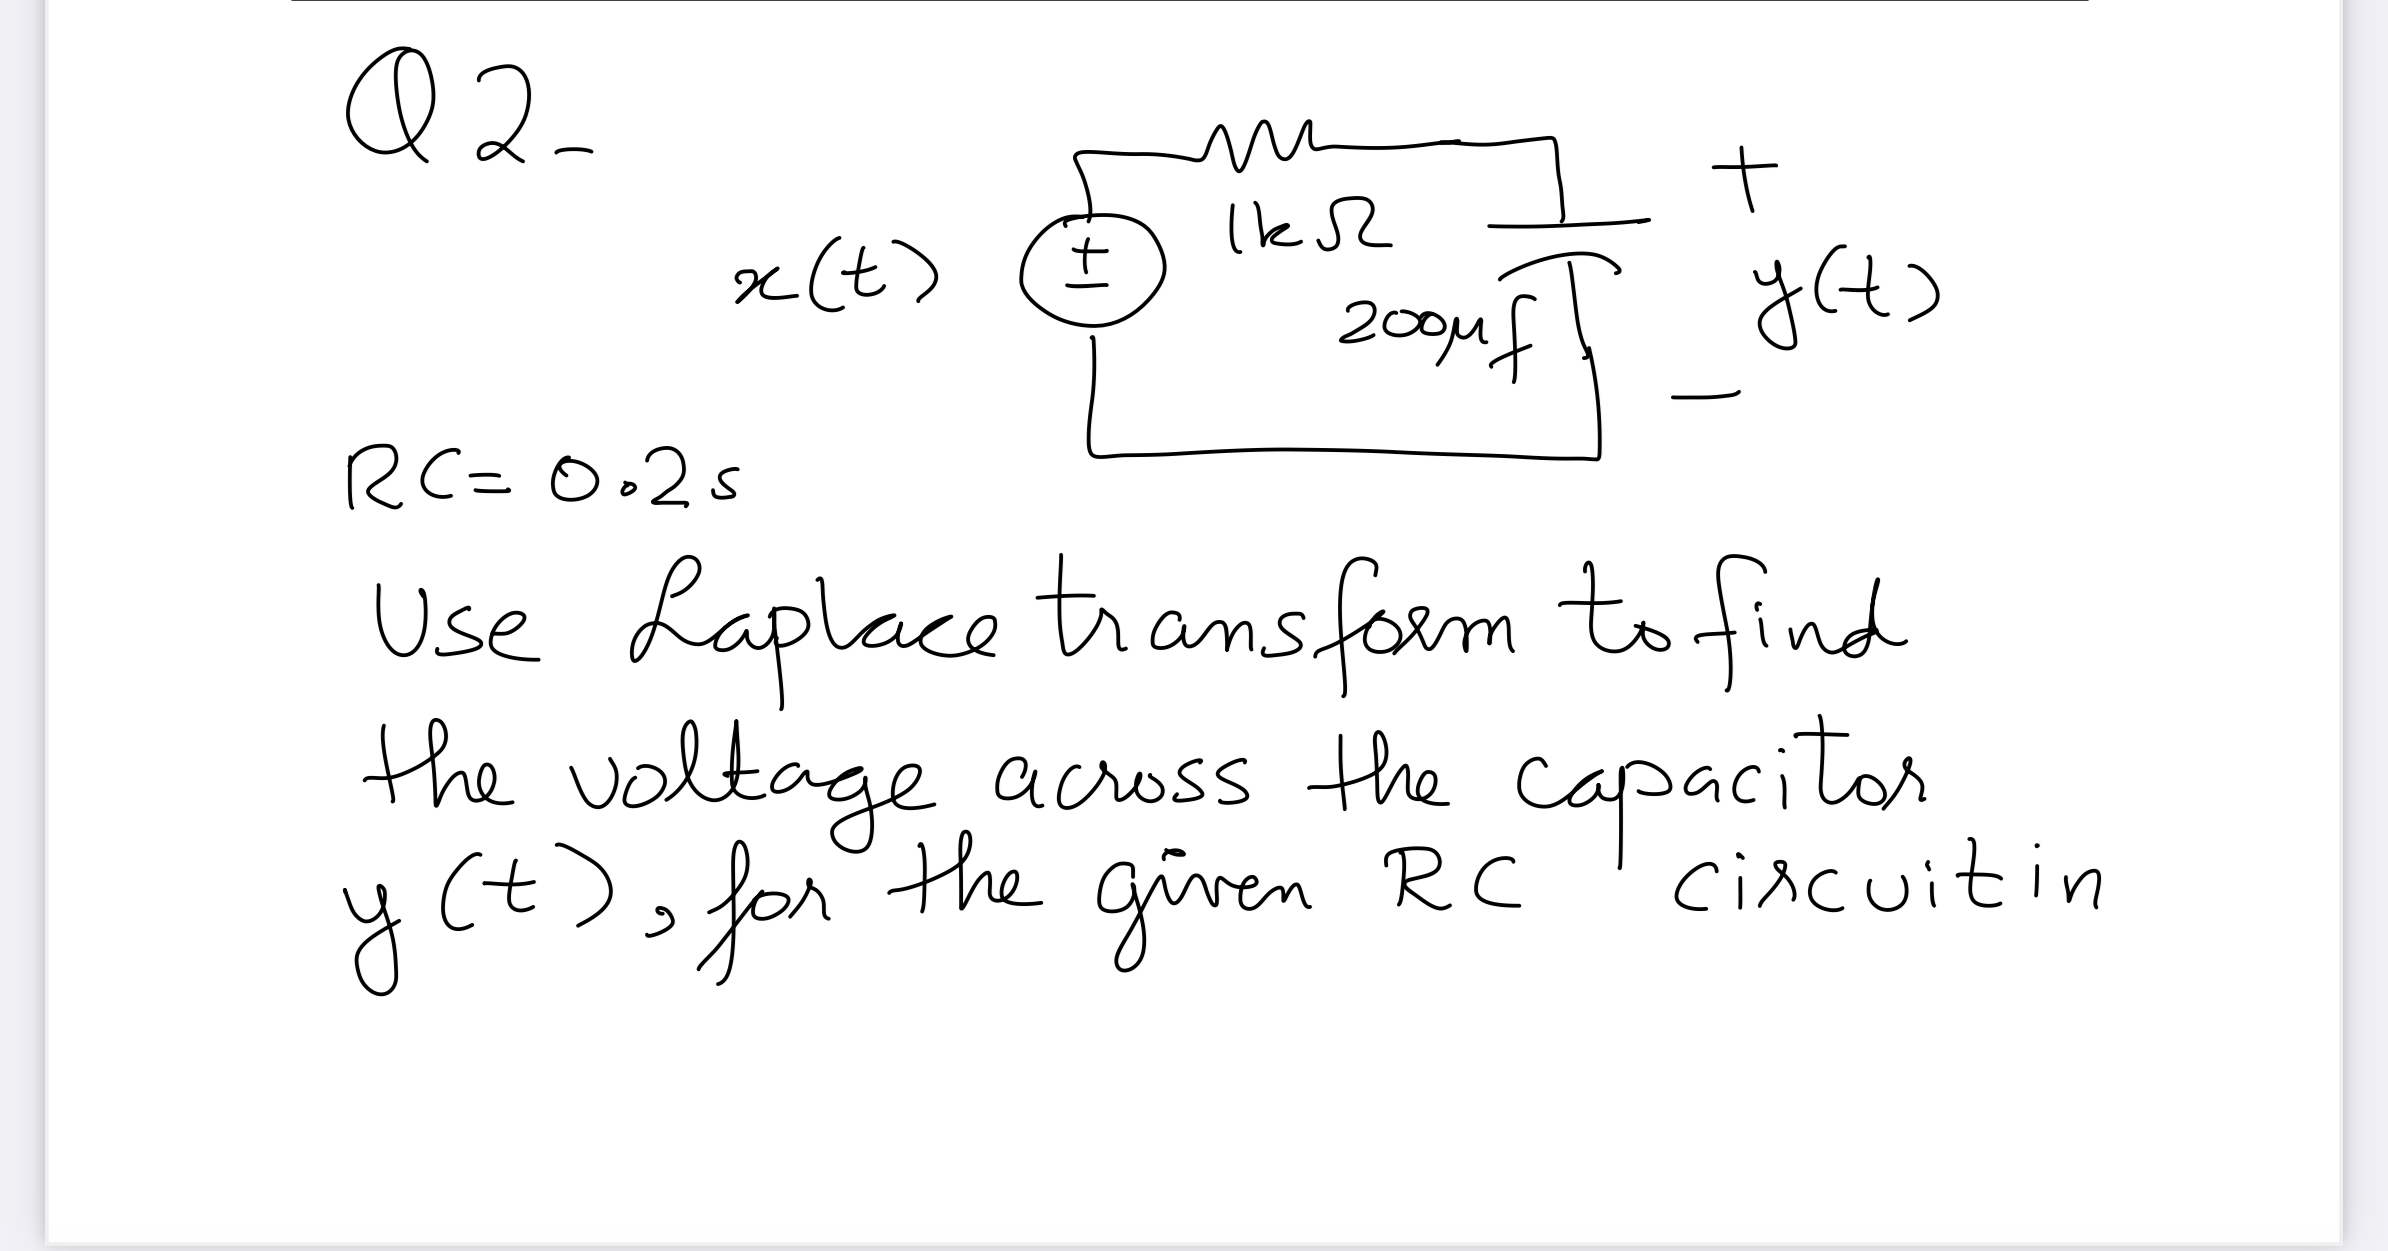 Q2-
1kΩ
x(t)
±
+
y(t)
200μf
-
RC=0.2s
Use Laplace transform to find
the voltage across the capacitor
y(t), for the given RC circuit in